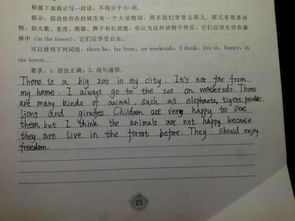 根据下面提示写一段话，不得少于 60 词。
提示：假设你所在的城市有一个大动物园，周末你们常常去那儿。那儿有很多动物，如大象、老虎、熊猫、狮子和长颈鹿。你认为这些动物不快乐，它们应该生活在森林里 (in the forest)。它们应享受自由。
可以使用下列词组：there be, far from, on weekends, I think, live in, happy, in the forest...
要求：1. 语法正确；2. 语句通顺。
There is a big zoo in my city. It's not far from
my home. I always go to the zoo on weekends. There
are many kinds of animal, such as elephants, tigers, pandas,
lions and giraffes. Children are very happy to see
them, but I think the animals are not happy because
they are live in the forest before. They should enjoy
freedom.
23